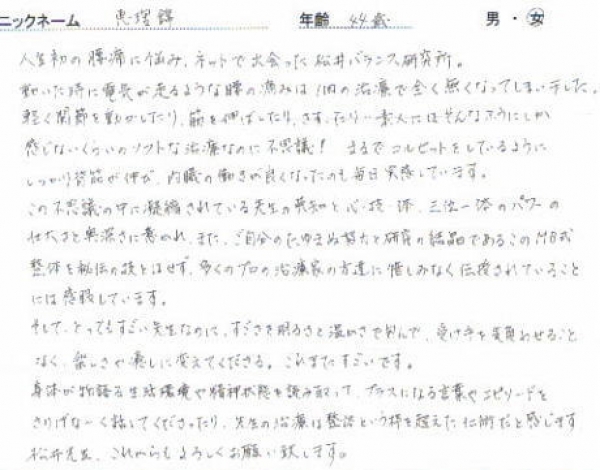 ニックネーム 恵理錦 年齢 44歳 男・女
人生初の腰痛に悩み、ネットで出会った松井バランス研究所。
動いた時に電気が走るような腰の痛みは1回の治療で全く無くなってしまいました。
軽く関節を動かしたり、筋を伸ばしたり、さすったり…素人にはそんなふうにしか
感じないくらいのソフトな治療なのに不思議! まるでコルセットをしているように
しっかり背筋が伸び、内臓の働きが良くなったのも毎日実感しています。
この不思議の中に凝縮されている先生の英知と心・技・体、三位一体のパワーの
壮大さと奥深さに驚かれ、また、ご自分のたゆまぬ努力と研究の結晶であるこのMB式
整体を秘伝の技とはせず、多くのプロの治療家の方達に惜しみなく伝授されていること
には感服しています。
そして、とってもすごい先生なのに、すごさを明るさと温かさで包んで、受け手を気負わせること
なく、楽しさや癒しに変えてくださる。これまたすごいです。
身体が物語る生活環境や精神状態を読み取って、プラスになる言葉やエピソードを
さりげな〜く話してくださったり、先生の治療は整体という枠を超えた仁術だと感じます
松井先生、これからもよろしくお願い致します。